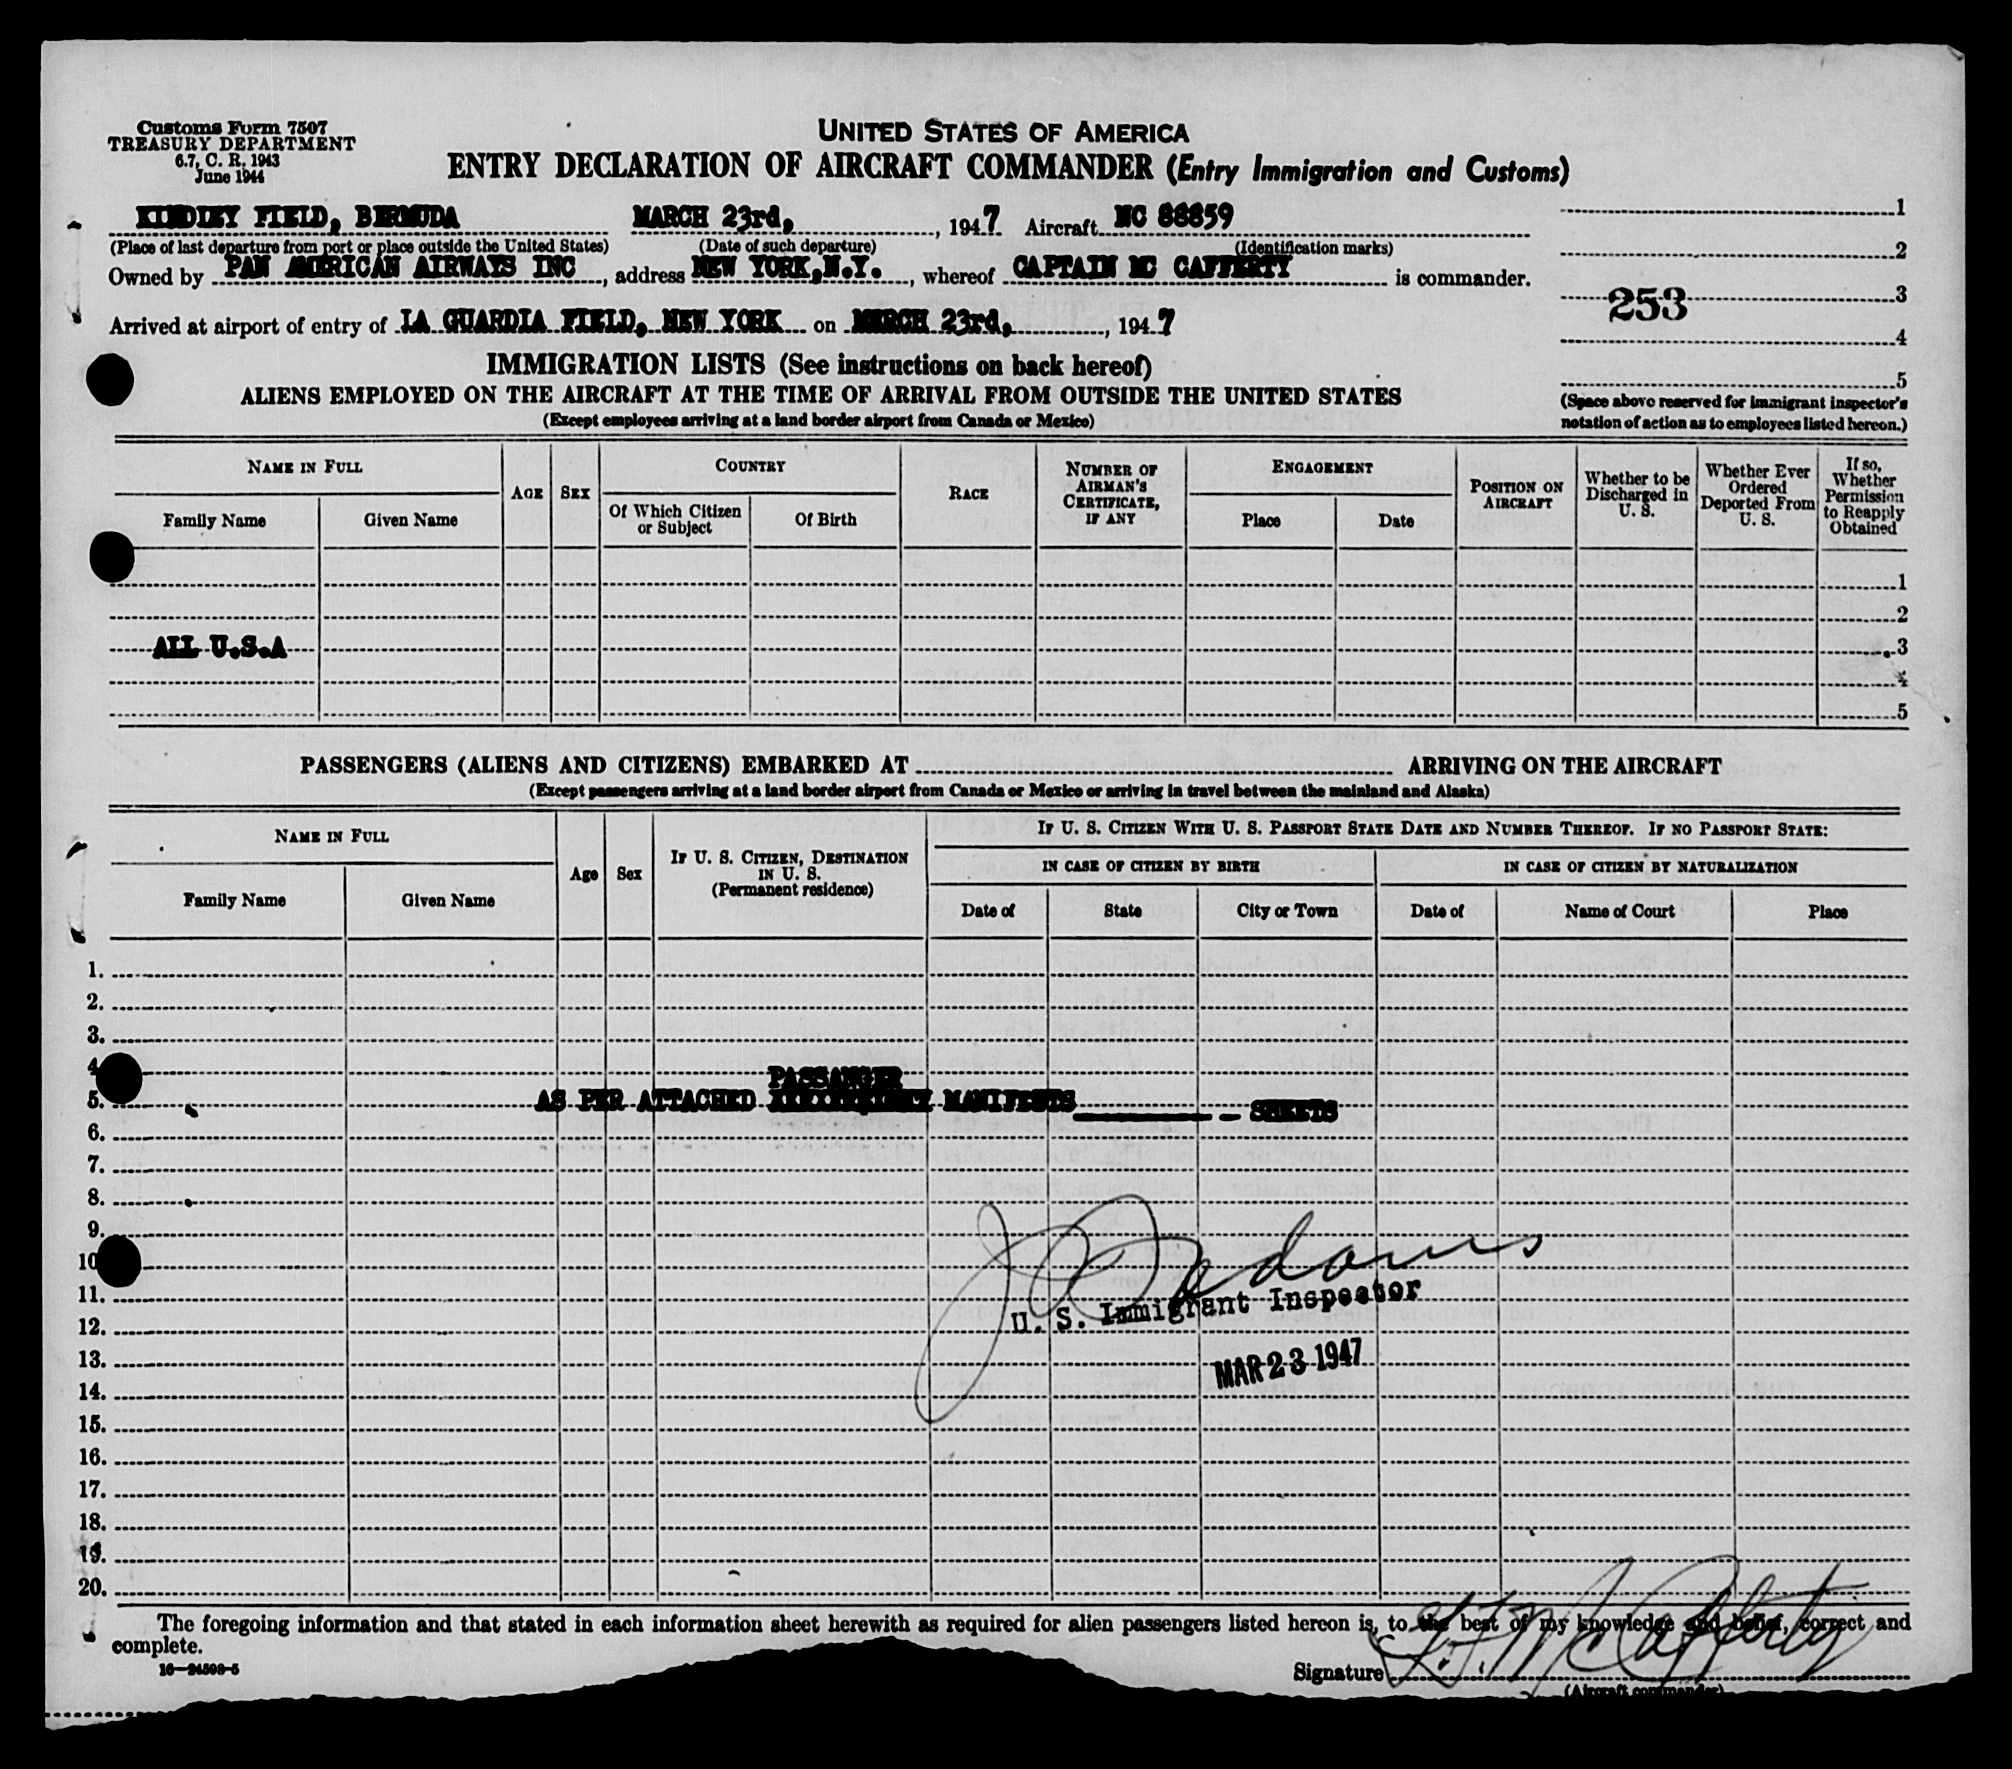 Customs Form 7507
TREASURY DEPARTMENT
6.7, C. R. 1943
June 1944
UNITED STATES OF AMERICA
ENTRY DECLARATION OF AIRCRAFT COMMANDER (Entry Immigration and Customs)
KINDLEY FIELD, BERMUDA MARCH 23rd, , 1947 Aircraft NC 88859
(Place of last departure from port or place outside the United States) (Date of such departure) (Identification marks)
Owned by PAN AMERICAN AIRWAYS INC , address NEW YORK,N.Y. , whereof CAPTAIN MC CAFFERTY is commander.
Arrived at airport of entry of LA GUARDIA FIELD, NEW YORK on MARCH 23rd, , 1947
1
2
3
253
4
5
(Space above reserved for immigrant inspector's
notation of action as to employees listed hereon.)
IMMIGRATION LISTS (See instructions on back hereof)
ALIENS EMPLOYED ON THE AIRCRAFT AT THE TIME OF ARRIVAL FROM OUTSIDE THE UNITED STATES
(Except employees arriving at a land border airport from Canada or Mexico)
NAME IN FULL
Family Name Given Name
AGE
SEX
COUNTRY
Of Which Citizen or Subject
Of Birth
RACE
NUMBER OF AIRMAN'S CERTIFICATE, IF ANY
ENGAGEMENT
Place Date
POSITION ON AIRCRAFT
Whether to be Discharged in U. S.
Whether Ever Ordered Deported From U. S.
If so, Whether Permission to Reapply Obtained
1
2
ALL U.S.A 3
4
5
PASSENGERS (ALIENS AND CITIZENS) EMBARKED AT ARRIVING ON THE AIRCRAFT
(Except passengers arriving at a land border airport from Canada or Mexico or arriving in travel between the mainland and Alaska)
NAME IN FULL
Family Name Given Name
Age
Sex
IF U. S. CITIZEN, DESTINATION IN U. S.
(Permanent residence)
IF U. S. CITIZEN WITH U. S. PASSPORT STATE DATE AND NUMBER THEREOF. IF NO PASSPORT STATE:
IN CASE OF CITIZEN BY BIRTH IN CASE OF CITIZEN BY NATURALIZATION
Date of State City or Town Date of Name of Court Place
1.
2.
3.
4
PASSANGER
5. AS PER ATTACHED MANIFESTS - SHEETS
6.
7.
8.
9.
10
11.
U. S. Immigrant Inspector
12.
13.
MAR 23 1947
14.
15.
16.
17.
18.
19.
20.
The foregoing information and that stated in each information sheet herewith as required for alien passengers listed hereon is, to the best of my knowledge and belief, correct and
complete.
16—24598-5
Signature McCafferty
(Aircraft commander)